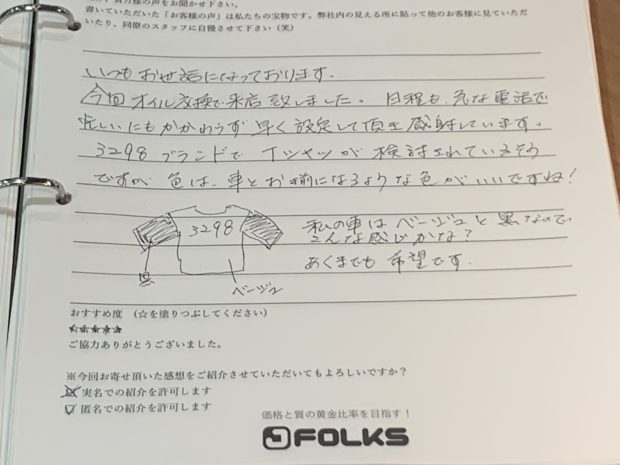 貴方様の声をお聞かせ下さい。
書いていただいた「お客様の声」は私たちの宝物です。弊社内の見える所に貼って他のお客様に見ていただ
いたり、同僚のスタッフに自慢させて下さい（笑）
いつもお世話になっております。
今回オイル交換で来店致しました。日程も急な電話で
忙しいにもかかわらず早く設定して頂き感謝しています。
3298ブランドでTシャツが検討されているそう
ですが色は、車とお揃になるような色がいいですね！
3298
私の車はベージュと黒なので
こんな感じかな？
あくまでも希望です。
黒
ベージュ
おすすめ度 （☆を塗りつぶしてください）
★★★★★
ご協力ありがとうございました。
※今回お寄せ頂いた感想をご紹介させていただいてもよろしいですか？
実名での紹介を許可します
匿名での紹介を許可します
価格と質の黄金比率を目指す！
FOLKS